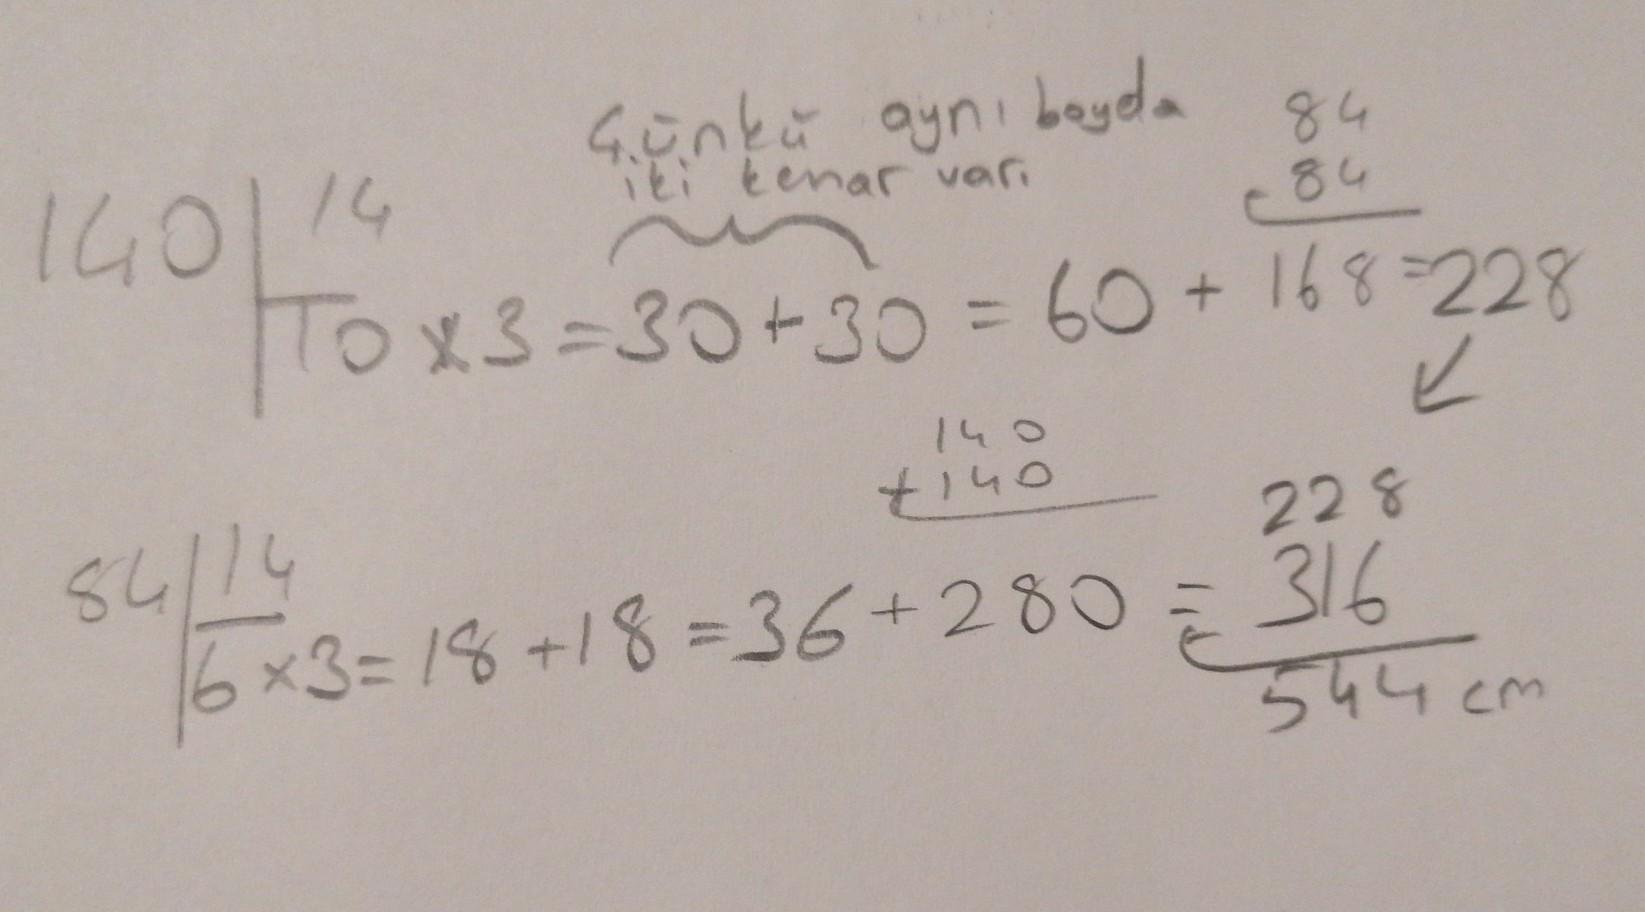 Çünkü aynı boyda
iki kenar var.
84
84
168
140 | 14
10 x 3 = 30 + 30 = 60 + 168 = 228
140
+ 140
84 | 14
6 x 3 = 18 + 18 = 36 + 280 =
228
316
544 cm